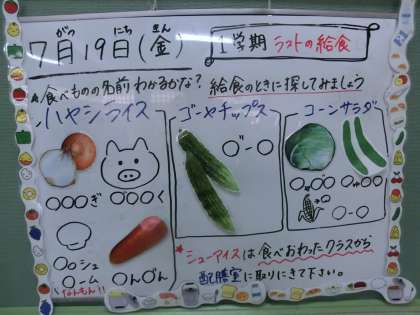 がつ にち きん
7月19日(金)
1学期 ラストの給食
食べものの名前わかるかな? 給食のときに探してみましょう
ハヤシライス
ゴーヤチップス
コーンサラダ
○○○ぎ ○○○く
○゛ー○
○○シュ
○ーム
なんもん!!
○ん○ん
○ー○
シューアイスは食べおわったクラスから
配膳室に取りにきて下さい。